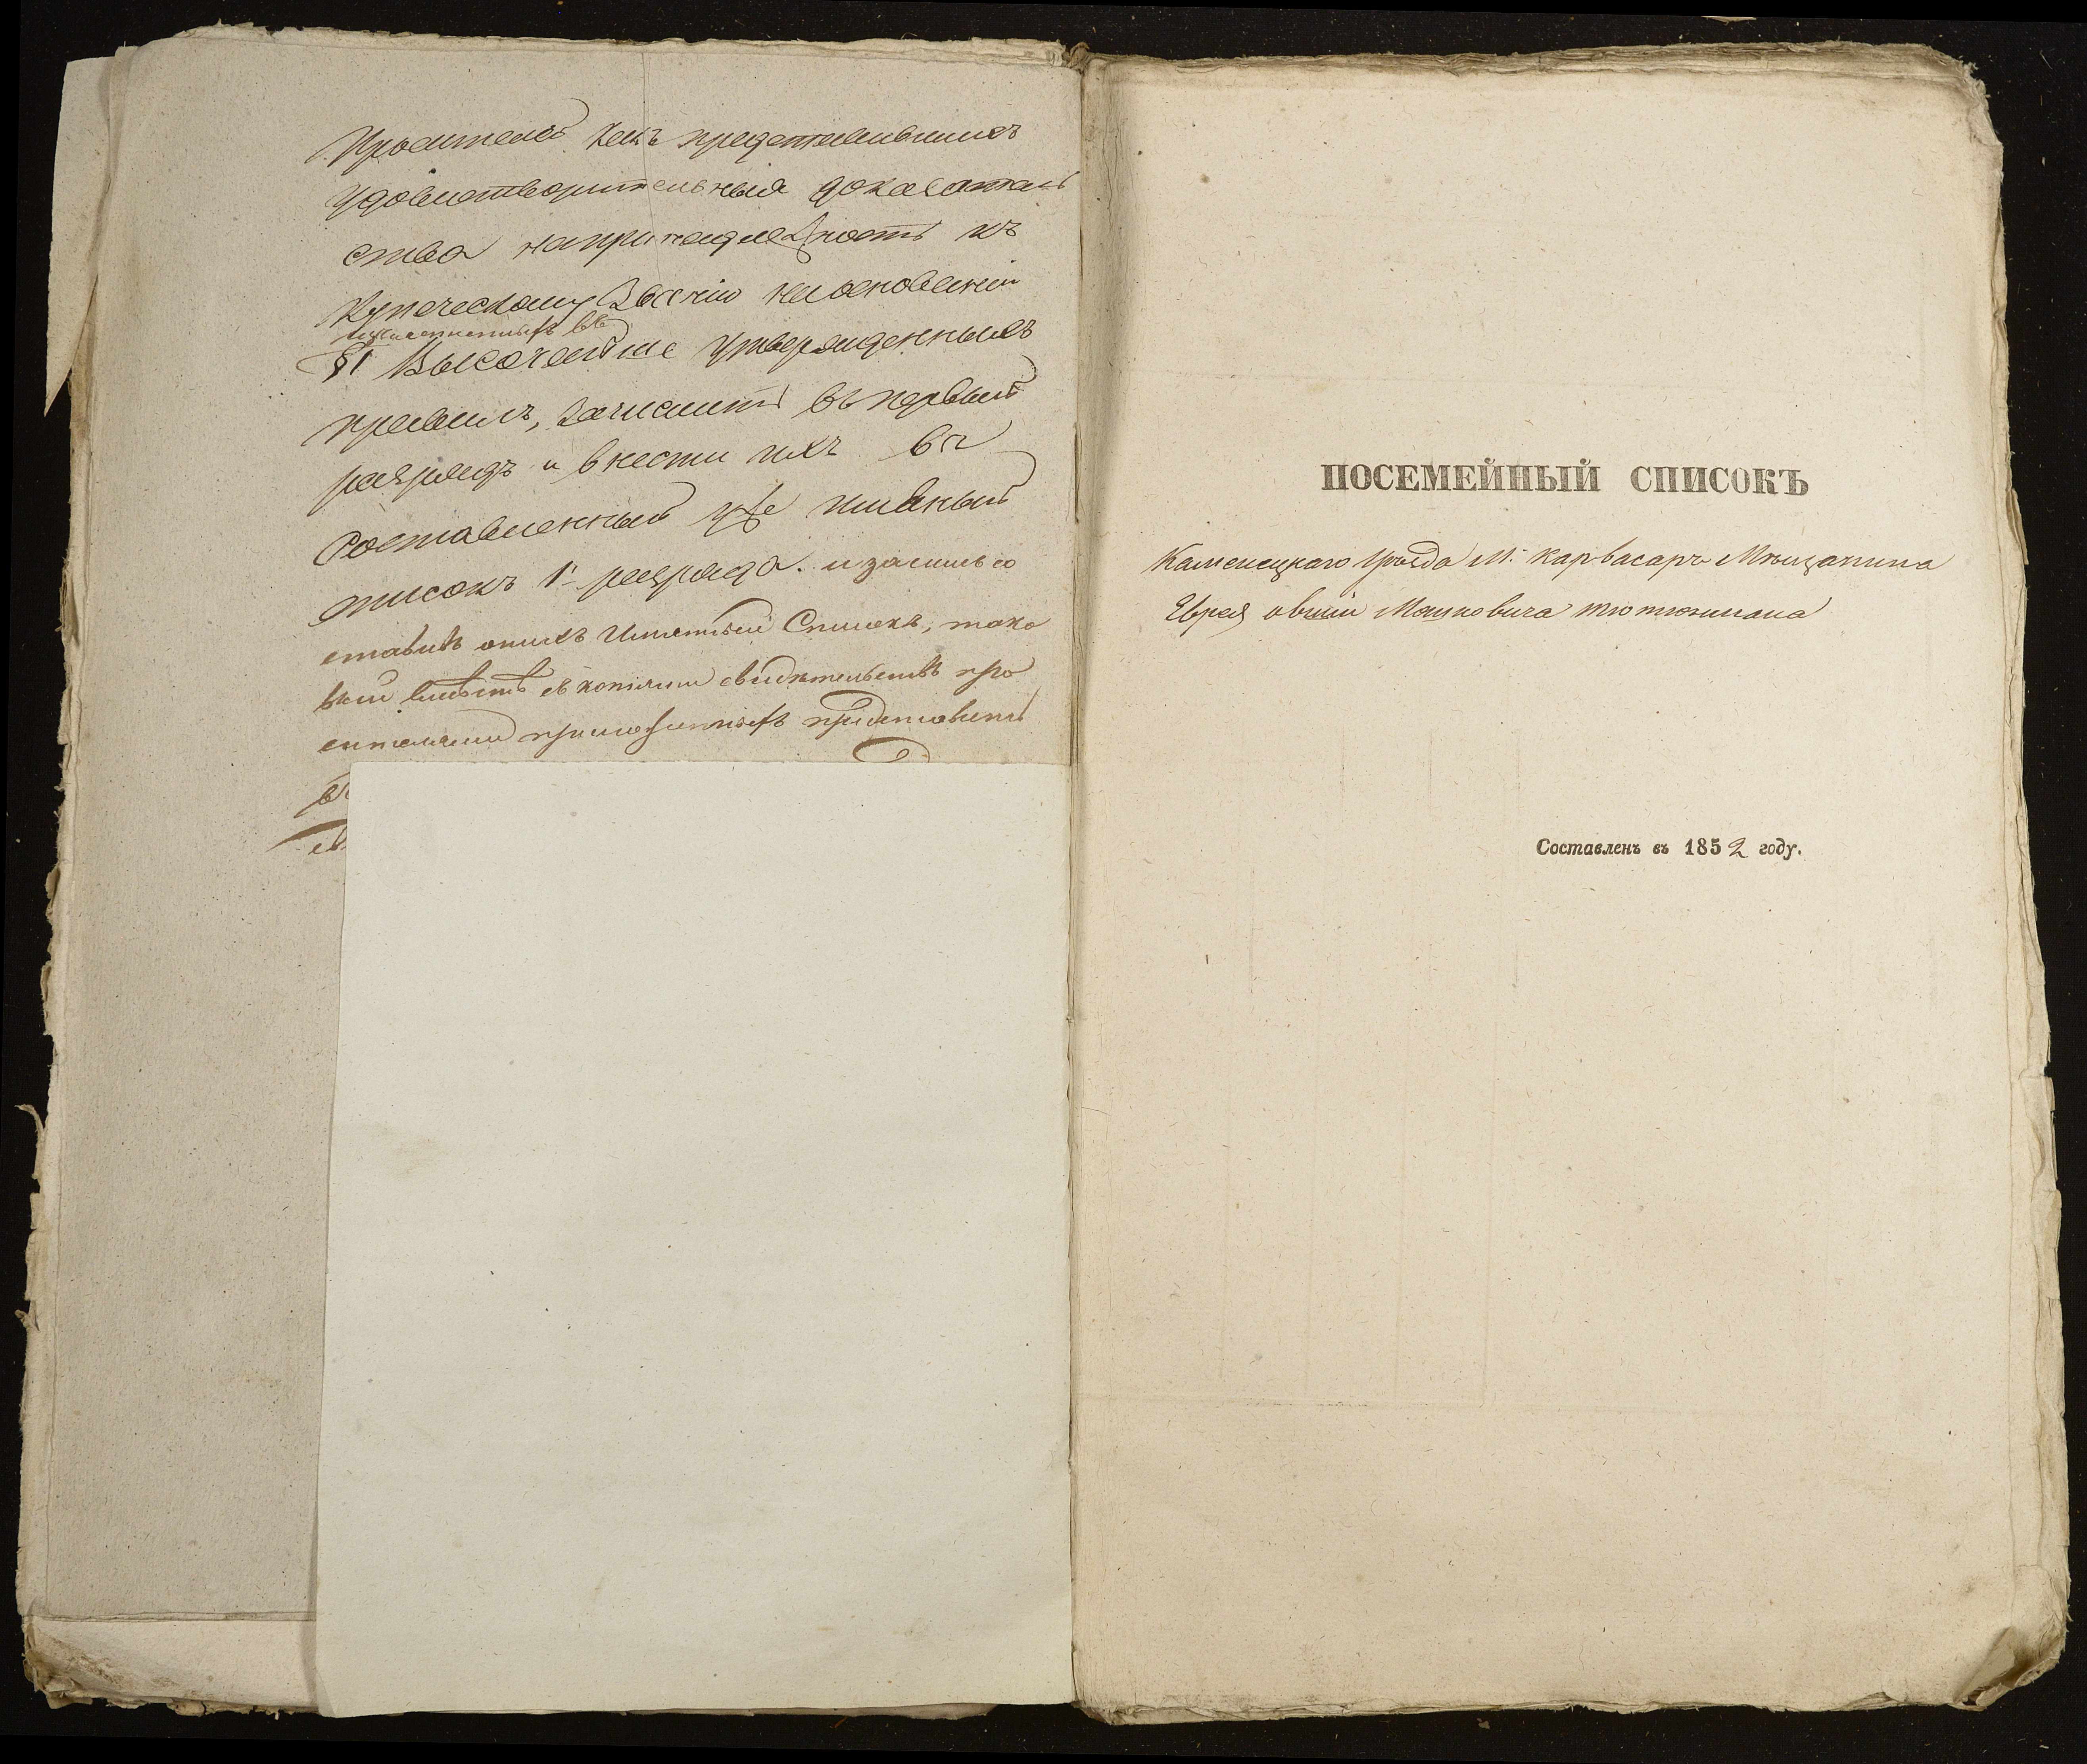 Просителей какъ представившихъ
удовлетворительныя доказатель
ства на принадлежность къ
Купеческому званію на основаніи
изложенныхъ въ
§1 Высочайше утвержденныхъ
правилъ, зачислить въ первый
разрядъ и внести ихъ въ
составленный уже имянный
списокъ 1го разряда. и
ставивъ о нихъ Имянный Списокъ, тако
вый вмѣстѣ съ копіями свидѣтельствъ про
сителями приложенныхъ представить
ПОСЕМЕЙНЫЙ СПИСОКЪ
Каменецкаго Уѣзда М. Карвасаръ Мѣщанина
Еврея Овшии Мошковича Тютюнмана
Составленъ въ 1852 году.